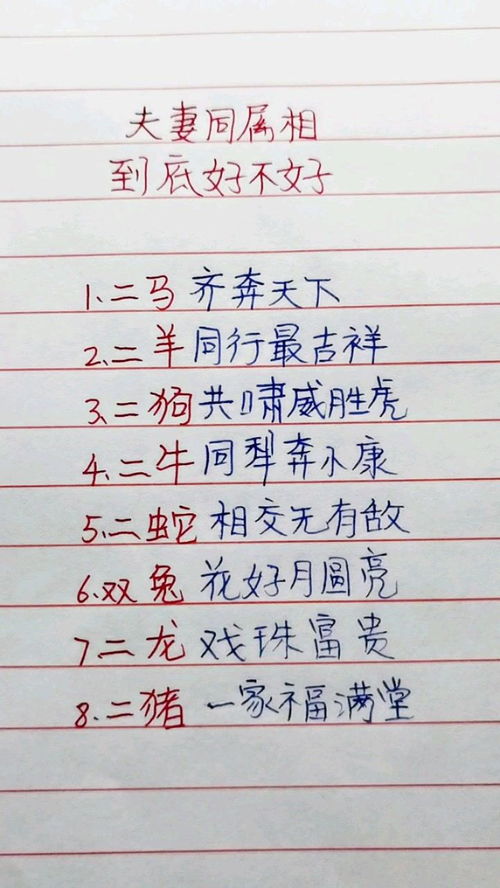 夫妻同属相
到底好不好
1.二马 齐奔天下
2.二羊同行最吉祥
3.二狗共啸威胜虎
4.二牛同犁奔小康
5.二蛇相交无有敌
6.双兔 花好月圆亮
7二龙 戏珠富贵
8.二猪 一家福满堂